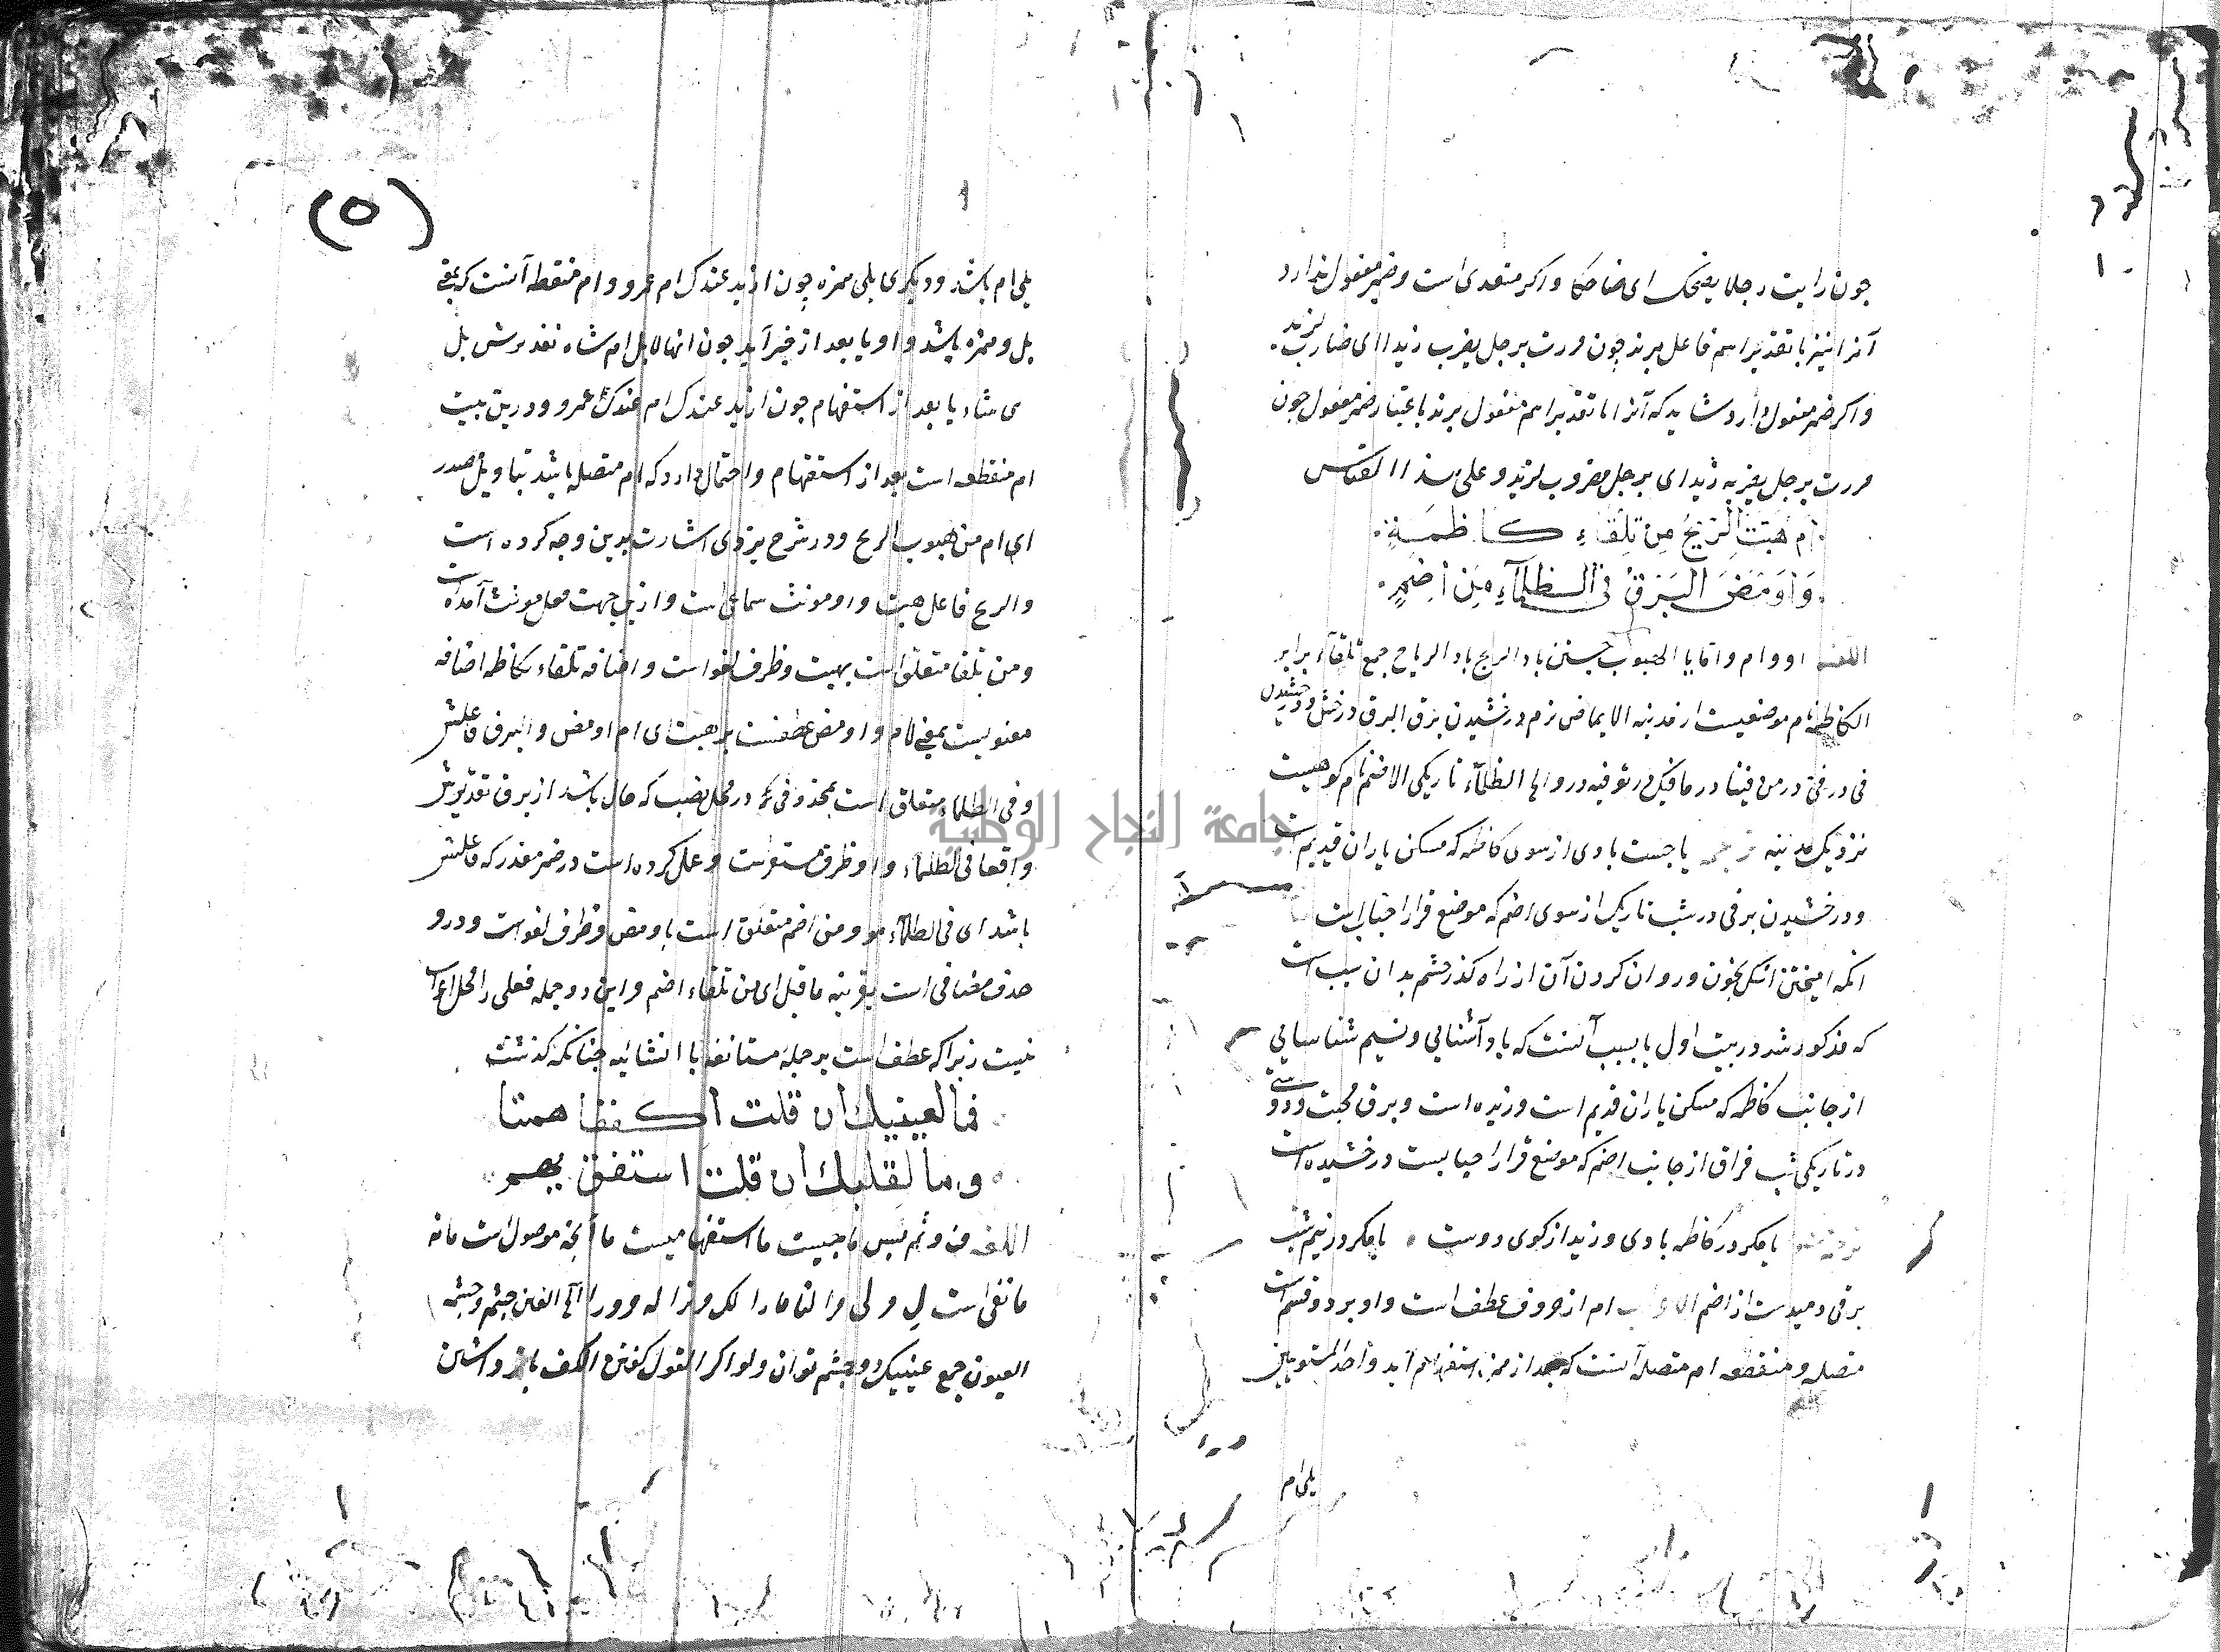 چون رایت رجلا یضحک ای ضاحکا و اکر متعدی است و ضمیر مفعول ندارد
آنرا نیز با تقدیر اسم فاعل برند چون مررت برجل یضرب زیدا ای ضارب لزید
و اکر ضمیر مفعول دارد شاید که آنرا با تقدیر اسم مفعول برند باعتبار ضمیر مفعول چون
مررت برجل یضربه زید ای برجل مضروب لزید و علی هذا القیاس
ام هبت الریح من تلقاء کاظمة
واومض البرق في الظلماء من اضم
اللغه او و ام و اما یا الهبوب جستن باد الریح باد الریاح جمع تلقاء برابر
الکاظمه نام موضعیست از مدینه الایماض نرم درخشیدن برق البرق درخش و درخشیدن
فی در فیّ در من فینا در ما فیک در تو فیه در و الظلماء تاریکی الاضم نام کوهیست
نزدیک مدینه ترجمه یا جست بادی از سوی کاظمه که مسکن یاران قدیم است
و درخشیدن برقی در شب تاریک از سوی اضم که موضع قرار احباب است
انکه امیختن اشک بخون و روان کردن آن از راه کذر چشم بدان سبب است
که مذکور شد در بیت اول یا بسبب آنست که باد آشنایی و نسیم شناسایی
از جانب کاظمه که مسکن یاران قدیم است وزیده است و برق محبت و دوستی
در تاریکی شب فراق از جانب اضم که موضع قرار احبابست درخشیده است
یا مکر در کاظمه بادی وزید از کوی دوست یا مکر در نیم شب
برقی دمیدست از اضم ام از حروف عطف است و او بر دو قسم است
متصله و منقطعه ام متصله آنست که بعد از همزه استفهام آید و احد المستویین
یلی ام
(٥)
یلی ام باشد و دیکری یلی همزه چون ازید عندک ام عمرو و ام منقطه آنست که بمعنی
بل و همزه باشد و او یا بعد از خبر آید چون انها لابل ام شاء
یا بعد از استفهام چون ازید عندک ام عندک عمرو و در این بیت
ام منقطعه است بعد از استفهام و احتمال دارد که ام متصله باشد بتاویل مصدر
ای ام من هبوب الریح و در شرح یزدی اشارت بدین وجه کرده است
و الریح فاعل هبت و او مونث سماعی است و ازین جهت فعل مونث آمده است
و من تلقا متعلق است بهبت و ظرف لغو است و اضافه تلقاء بکاظمه اضافه
معنویست بمعنی لام و اومض عطفست بر هبت ای ام اومض و البرق فاعلش
و فی الظلماء متعلق است بمحذوفی که در محل نصب که حال باشد از برق تقدیرش
واقعا فی الظلماء و او ظرف مستقر است و عمل کرده است در ضمیر مقدر که فاعلش
باشد ای فی الظلماء هو و من اضم متعلق است باومض و ظرف لغو است و درو
حذف مضافی است بقرینه ماقبل ای من تلقاء اضم و این دو جمله فعلی را محل اعراب
نیست زیرا که عطف است بر جمله مستانفه یا انشائیه چنانکه کذشت
فما لعینیك ان قلت اكففا همتا
وما لقلبك ان قلت استفق یهم
اللغه ف و ثم پس ما چیست ما استفهامیست ما آنچه موصول است ما نه
ما نفی است لِ و لی مرا لنا ما را لک ترا له و را العین چشم و چشمه
العیون جمع عینیک دو چشم تو ان و لو اکر القول کفتن الکف باز داشتن
جامعة النجاح الوطنية